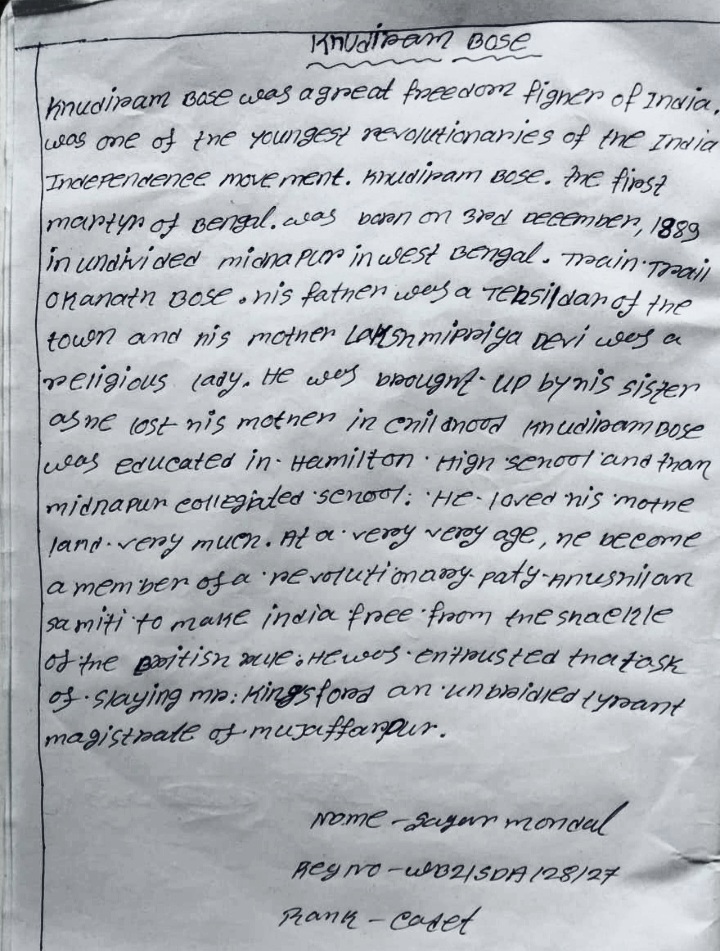 Khudiram Bose
Khudiram Bose was a great freedom figher of India.
was one of the youngest revolutionaries of the India
Independence movement. Khudiram Bose. The first
martyr of Bengal. was born on 3rd December, 1889
in undivided midnapur in west Bengal. Train Trail
okanath Bose. his father was a Tehsildar of the
town and his mother Lakshmipriya Devi was a
religious lady. He was brought-up by his sister
as he lost his mother in childhood Khudiram Bose
was educated in Hamilton High school and than
midnapur collegiated school. He loved his mothe
land very much. At a very very age, he become
a member of a revolutionary paty Anushilan
samiti to make india free from the shackle
of the British rule. He was entrusted that task
of slaying mr. Kingsford an unbridled tyrant
magistrate of mujaffarpur.
Name - Sagar mondal
Reg no - WB21SDA128127
Rank - Cadet